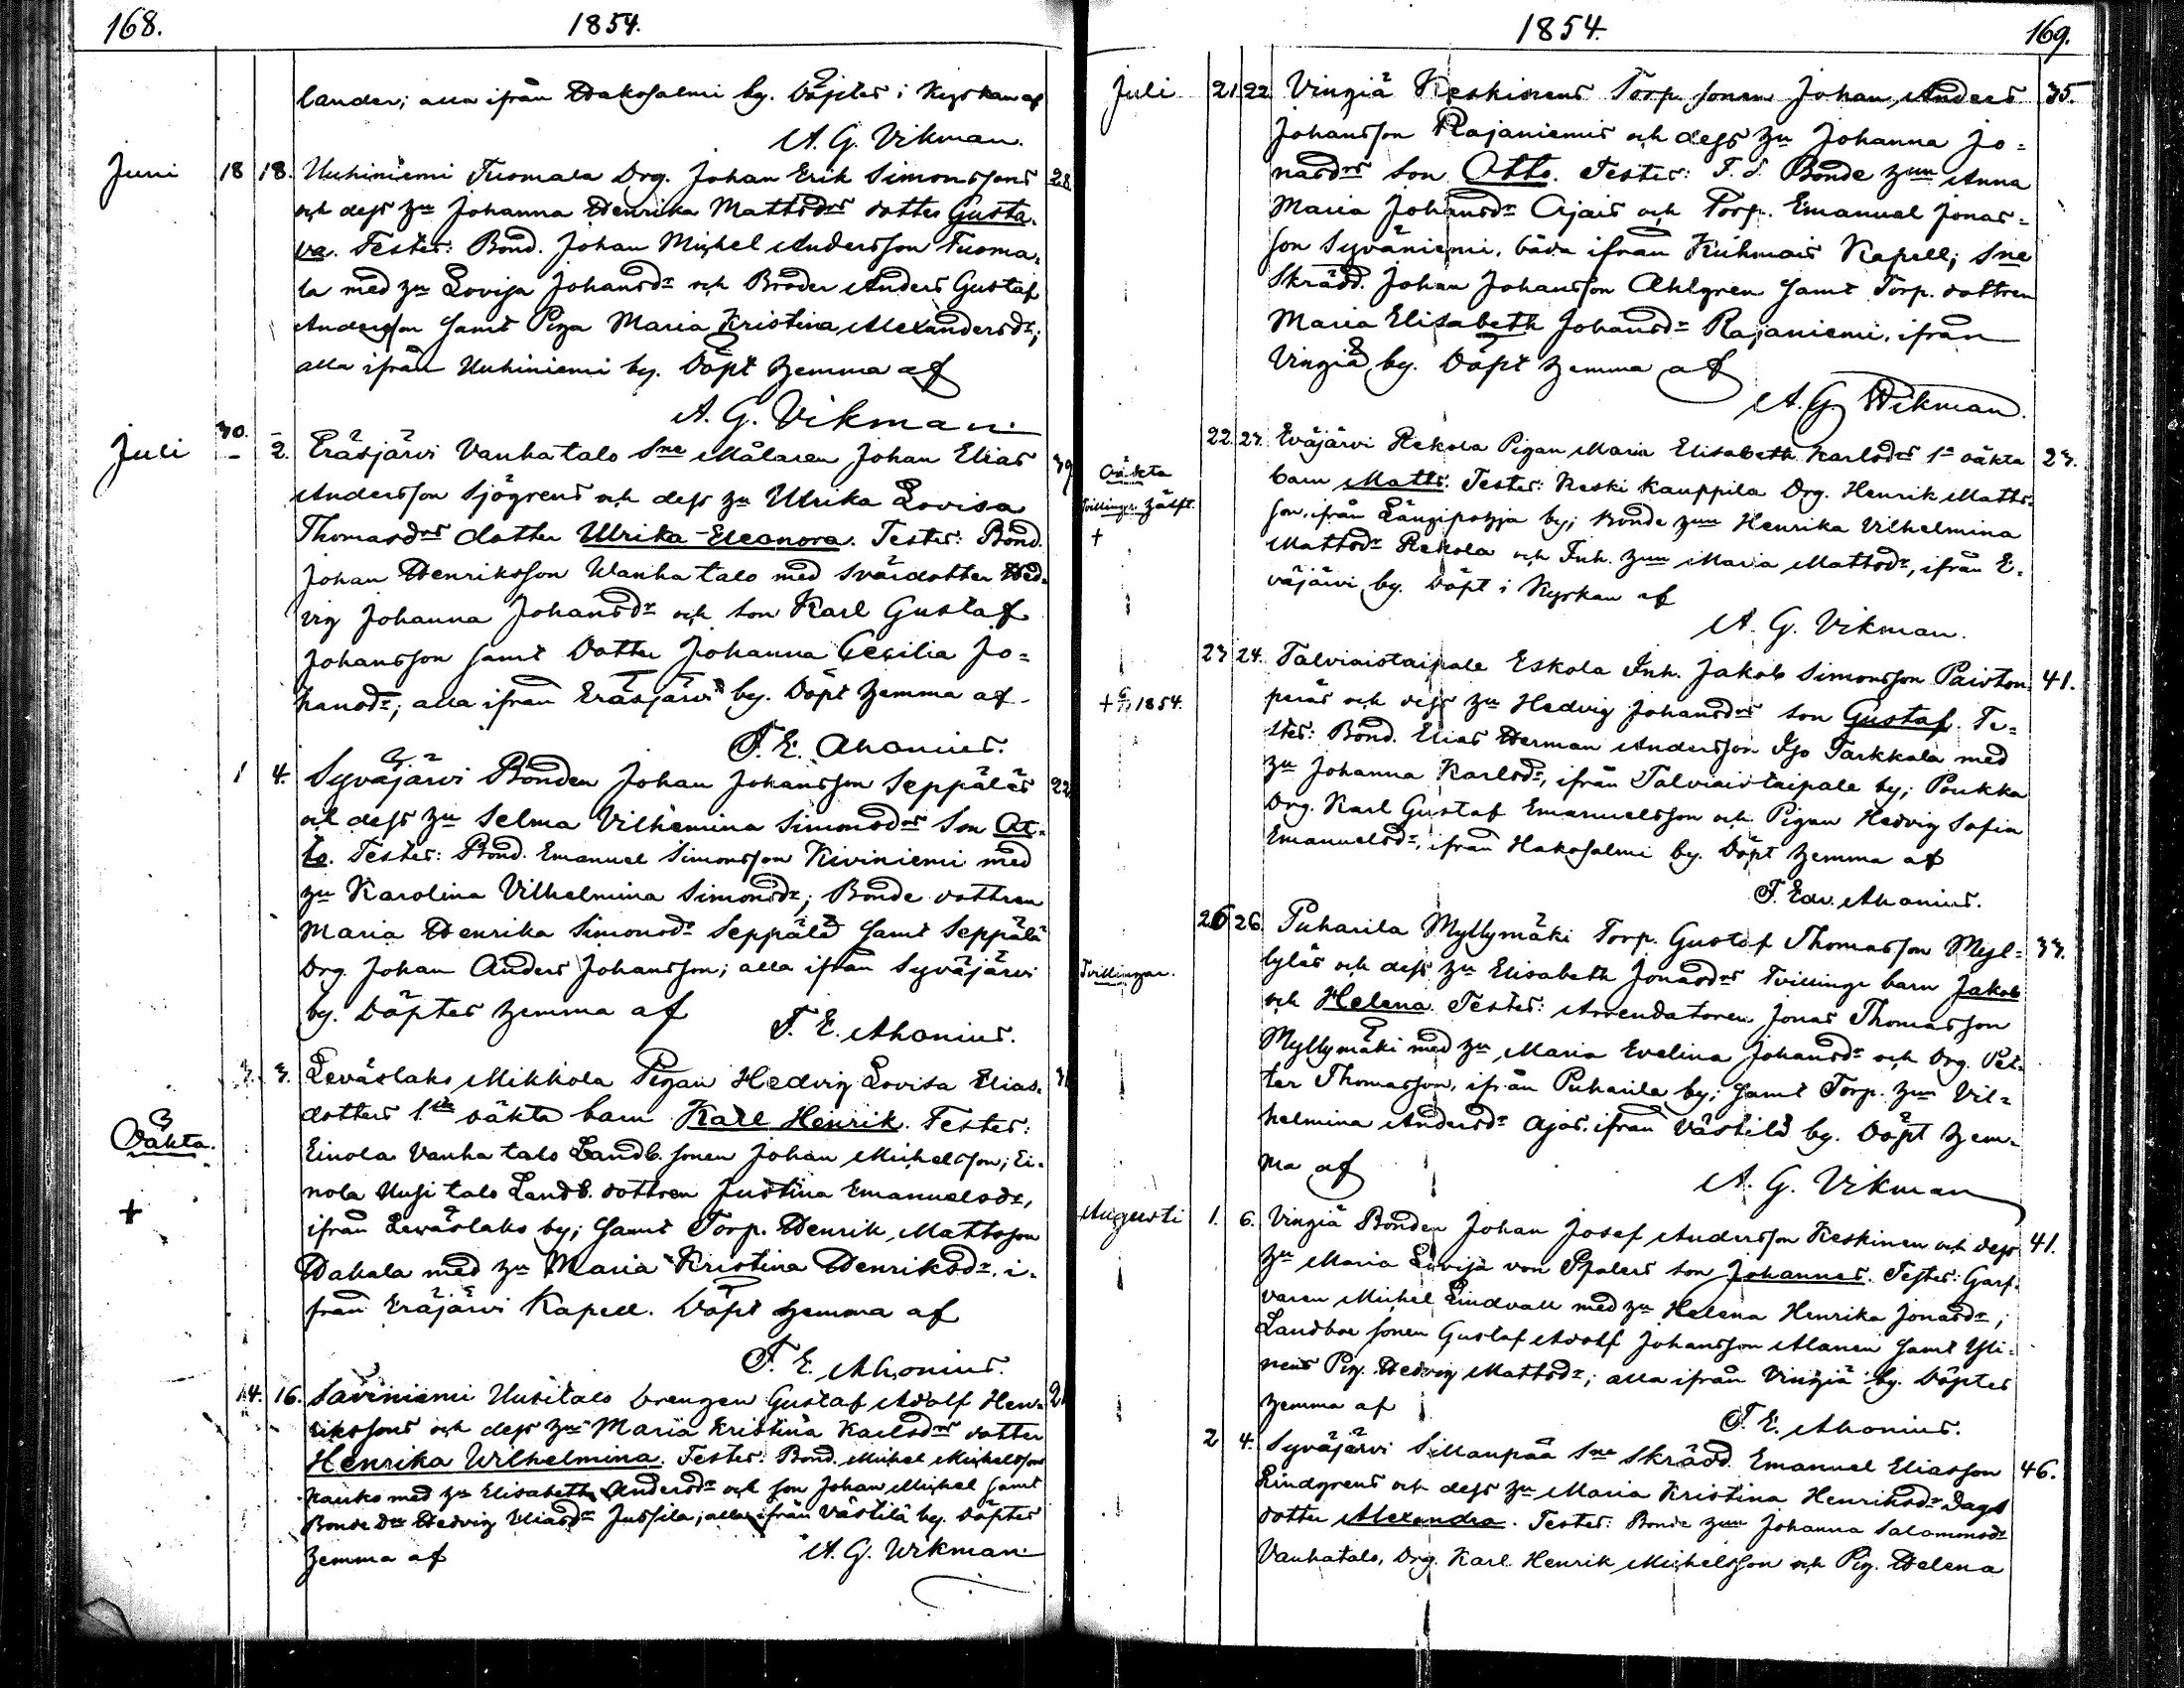 168.
1854.
lander; alla ifrån Hakosalmi by. Döptes i Kyrkan af
A. G. Vikman.
Juni 18 18. Uuhiniemi Tuomala Drg. Johan Erik Simonssons 28
och dess hu Johanna Henrika Mattsdrs dotter Gusta-
va. Testes: Bond. Johan Michel Andersson Tuoma-
la med hu Lovisa Johansdr och Broder Anders Gustaf
Andersson samt Piga Maria Kristina Alexandersdr;
alla ifrån Uuhiniemi by. Döpt hemma af
A. G. Vikman.
Juli 30. - 2. Eräsjärvi Vanhatalo Sne Målaren Johan Elias 39
Andersson Sjögrens och dess hu Ulrika Lovisa
Thomasdrs dotter Ulrika-Eleonora. Testes: Bond.
Johan Henriksson Wanhatalo med svärdotter Hed-
vig Johanna Johansdr och son Karl Gustaf
Johansson samt Dotter Johanna Cecilia Jo-
hansdr; alla ifrån Eräsjärvi by. Döpt hemma af
F. E. Ahonius.
1 4. Syväjärvi Bonden Johan Johansson Seppäläs 22
och dess hu Selma Vilhemina Simonsdrs Son Ot-
to. Testes: Bond. Emanuel Simonsson Kiviniemi med
hu Karolina Vilhelmina Simonsdr; Bonde dottren
Maria Henrika Simonsdr Seppälä samt Seppälä
Drg. Johan Anders Johansson; alla ifrån Syväjärvi
by. Döptes hemma af
F. E. Ahonius.
Oäkta.
+
3. 3. Leväslaks Mikkola Pigan Hedvig Lovisa Elias-
dotters 1sta oäkta barn Karl Henrik. Testes:
Einola Vanhatalo Landb. sonen Johan Michelsson; Ei-
nola Uusitalo Landb. dottren Justina Emanuelsdr,
ifrån Leväslaks by; samt Torp. Henrik Mattsson
Hakala med hu Maria Kristina Henriksdr. i-
från Eräjärvi Kapell. Döpt hemma af
F. E. Ahonius.
14. 16. Saviniemi Uusitalo drengen Gustaf Adolf Hen- 21
rikssons och dess hus Maria Kristina Karlsdrs dotter
Henrika Wilhelmina. Testes: Bond. Michel Michelsson
Kauko med hu Elisabeth Andersdr och son Johan Michel samt
Bonde Dr Hedvig Eliasdr Jussila; alla ifrån Västilä by. Döptes
hemma af
A. G. Wikman.
1854.
169.
Juli 21 22 Vingiä Keskinens Torp. sonen Johan Anders 35.
Johansson Rajaniemis och dess hu Johanna Jo-
nasdrs son Otto. Testes: F. d. Bonde hun Anna
Maria Johansdr Ojais och Torp. Emanuel Jonas-
son Syväniemi, båda ifrån Kuhmois Kapell; Sne
Skrädd. Johan Johansson Ahlgren samt Torp. dottren
Maria Elisabeth Johansdr Rajaniemi, ifrån
Vingiä by. Döpt hemma af
A. G. Wikman.
Oäkta
Tvillinge hälft.
+
22. 23. Eväjärvi Rekola Pigan Maria Elisabeth Karlsdrs 1a oäkta 23.
barn Matts. Testes: Keski Kauppila Drg. Henrik Matts-
son, ifrån Längipohja by; Bonde hun Henrika Vilhelmina
Mattsdr Rekola och Inh. hun Maria Mattsdr, ifrån E-
väjärvi by. Döpt i Kyrkan af
A. G. Vikman.
+ 1854.
23 24. Talviaistaipale Eskola Inh. Jakob Simonsson Päivton- 41.
peräs och dess hu Hedvig Johansdrs son Gustaf. Te-
stes: Bond. Elias Herman Andersson Iso Tarkkala med
hu Johanna Karlsdr, ifrån Talviaistaipale by; Poukka
Drg. Karl Gustaf Emanuelsson och Pigan Hedvig Sofia
Emanuelsdr, ifrån Hakosalmi by. Döpt hemma af
F. Edv. Ahonius.
Tvillingar.
26 26. Puharila Myllymäki Torp. Gustaf Thomasson Myl- 33.
lyläs och dess hu Elisabeth Jonasdrs Tvillinge barn Jakob
och Helena. Testes: Arrendatoren Jonas Thomasson
Myllymäki med hu Maria Evelina Johansdr och Drg. Pet-
ter Thomasson, ifrån Puharila by; samt Torp. hun Vil-
helmina Andersdr Ajos, ifrån Västilä by. Döpt hem-
ma af
A. G. Vikman
Augusti 1. 6. Vingiä Bonden Johan Josef Andersson Keskinen och dess 41.
hu Maria Lovisa von Spalers son Johannes. Testes: Garf-
varen Michel Lindvall med hu Helena Henrika Jonasdr;
Landboe sonen Gustaf Adolf Johansson Alanen samt Yli-
nens Pig. Hedvig Mattsdr; alla ifrån Vingiä by. Döptes
hemma af
F. E. Ahonius.
2 4. Syväjärvi Sillanpää Sne Skrädd. Emanuel Eliasson 46.
Lindgrens och dess hu Maria Kristina Henriksdr Dags
dotter Alexandra. Testes: Bonde hun Johanna Salomonsdr
Vanhatalo, Drg. Karl Henrik Michelsson och Pig. Helena